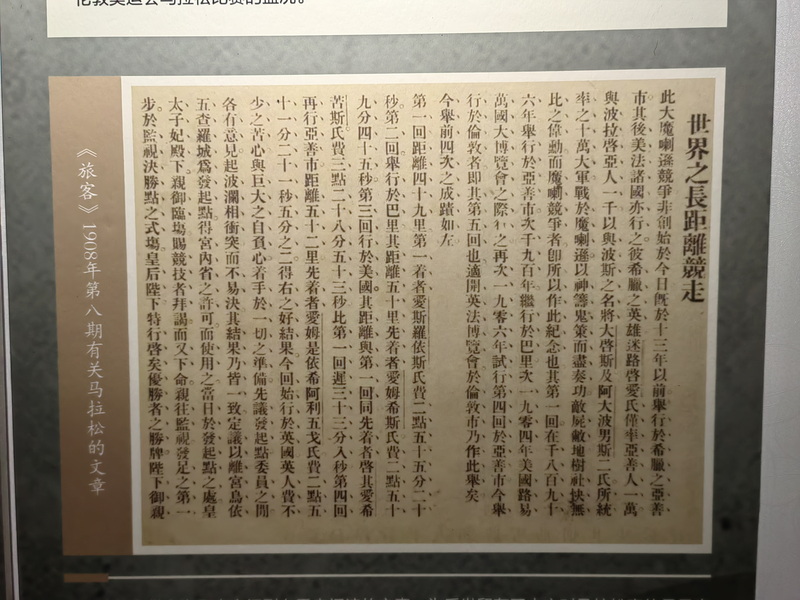 世界之長距離競走
此大魔喇遜競爭非創始於今日旣於十三年以前舉行於希臘之亞善
市其後美法諸國亦行之彼希臘之英雄迷路啓愛氏僅率亞善人一萬
與波拉啓亞人一千以與波斯之名將大啓斯及阿大波男斯二氏所統
率之十萬大軍戰於魔喇遜以神籌鬼策而盡奏功敵屍敵地樹社快無
比之偉勳而魔喇競爭者卽所以作此紀念也其第一回在千八百九十
六年舉行於亞善市次千九百年繼行於巴里次一九零四年美國路易
萬國大博覽會之際行之再次一九零六年試行第四回於亞善市今舉
行於倫敦者即其第五回也適開英法博覽會於倫敦市乃作此舉矣
今舉前四次之成蹟如左
第一回距離四十九里第一着者愛斯羅依斯氏費二點五十五分二十
秒第二回舉行於巴里其距離五十里先着者愛姆希斯氏費二點五十
九分四十五秒第三回行於美國其距離與第一回同先着者啓其愛希
苦斯氏費三點二十八分五十三秒比第一回遲三十三分入秒第四回
再行亞善市距離五十二里先着者愛姆是依希阿利五戈氏費二點五
十一分二十一秒五分之二得右之好結果今回始行於英國英人費不
少之苦心與巨大之自負心着手於一切之準備先議發起點委員之間
各有意見起波瀾相衝突而不易決其結果乃皆一致定議以離宮烏依
五查羅城爲發起點得宮內省之許可而使用之當日於發起點之處皇
太子妃殿下親御臨塲賜競技者拜謁而又下命親往監視發足之第一
步於監視決勝點之式塲皇后陛下特行啓矣優勝者之勝牌陛下御親
《旅客》1908年第八期有关马拉松的文章